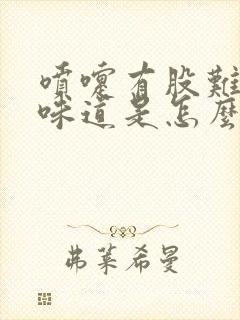 噴嚏有股難
味道是怎麼
弗萊希曼